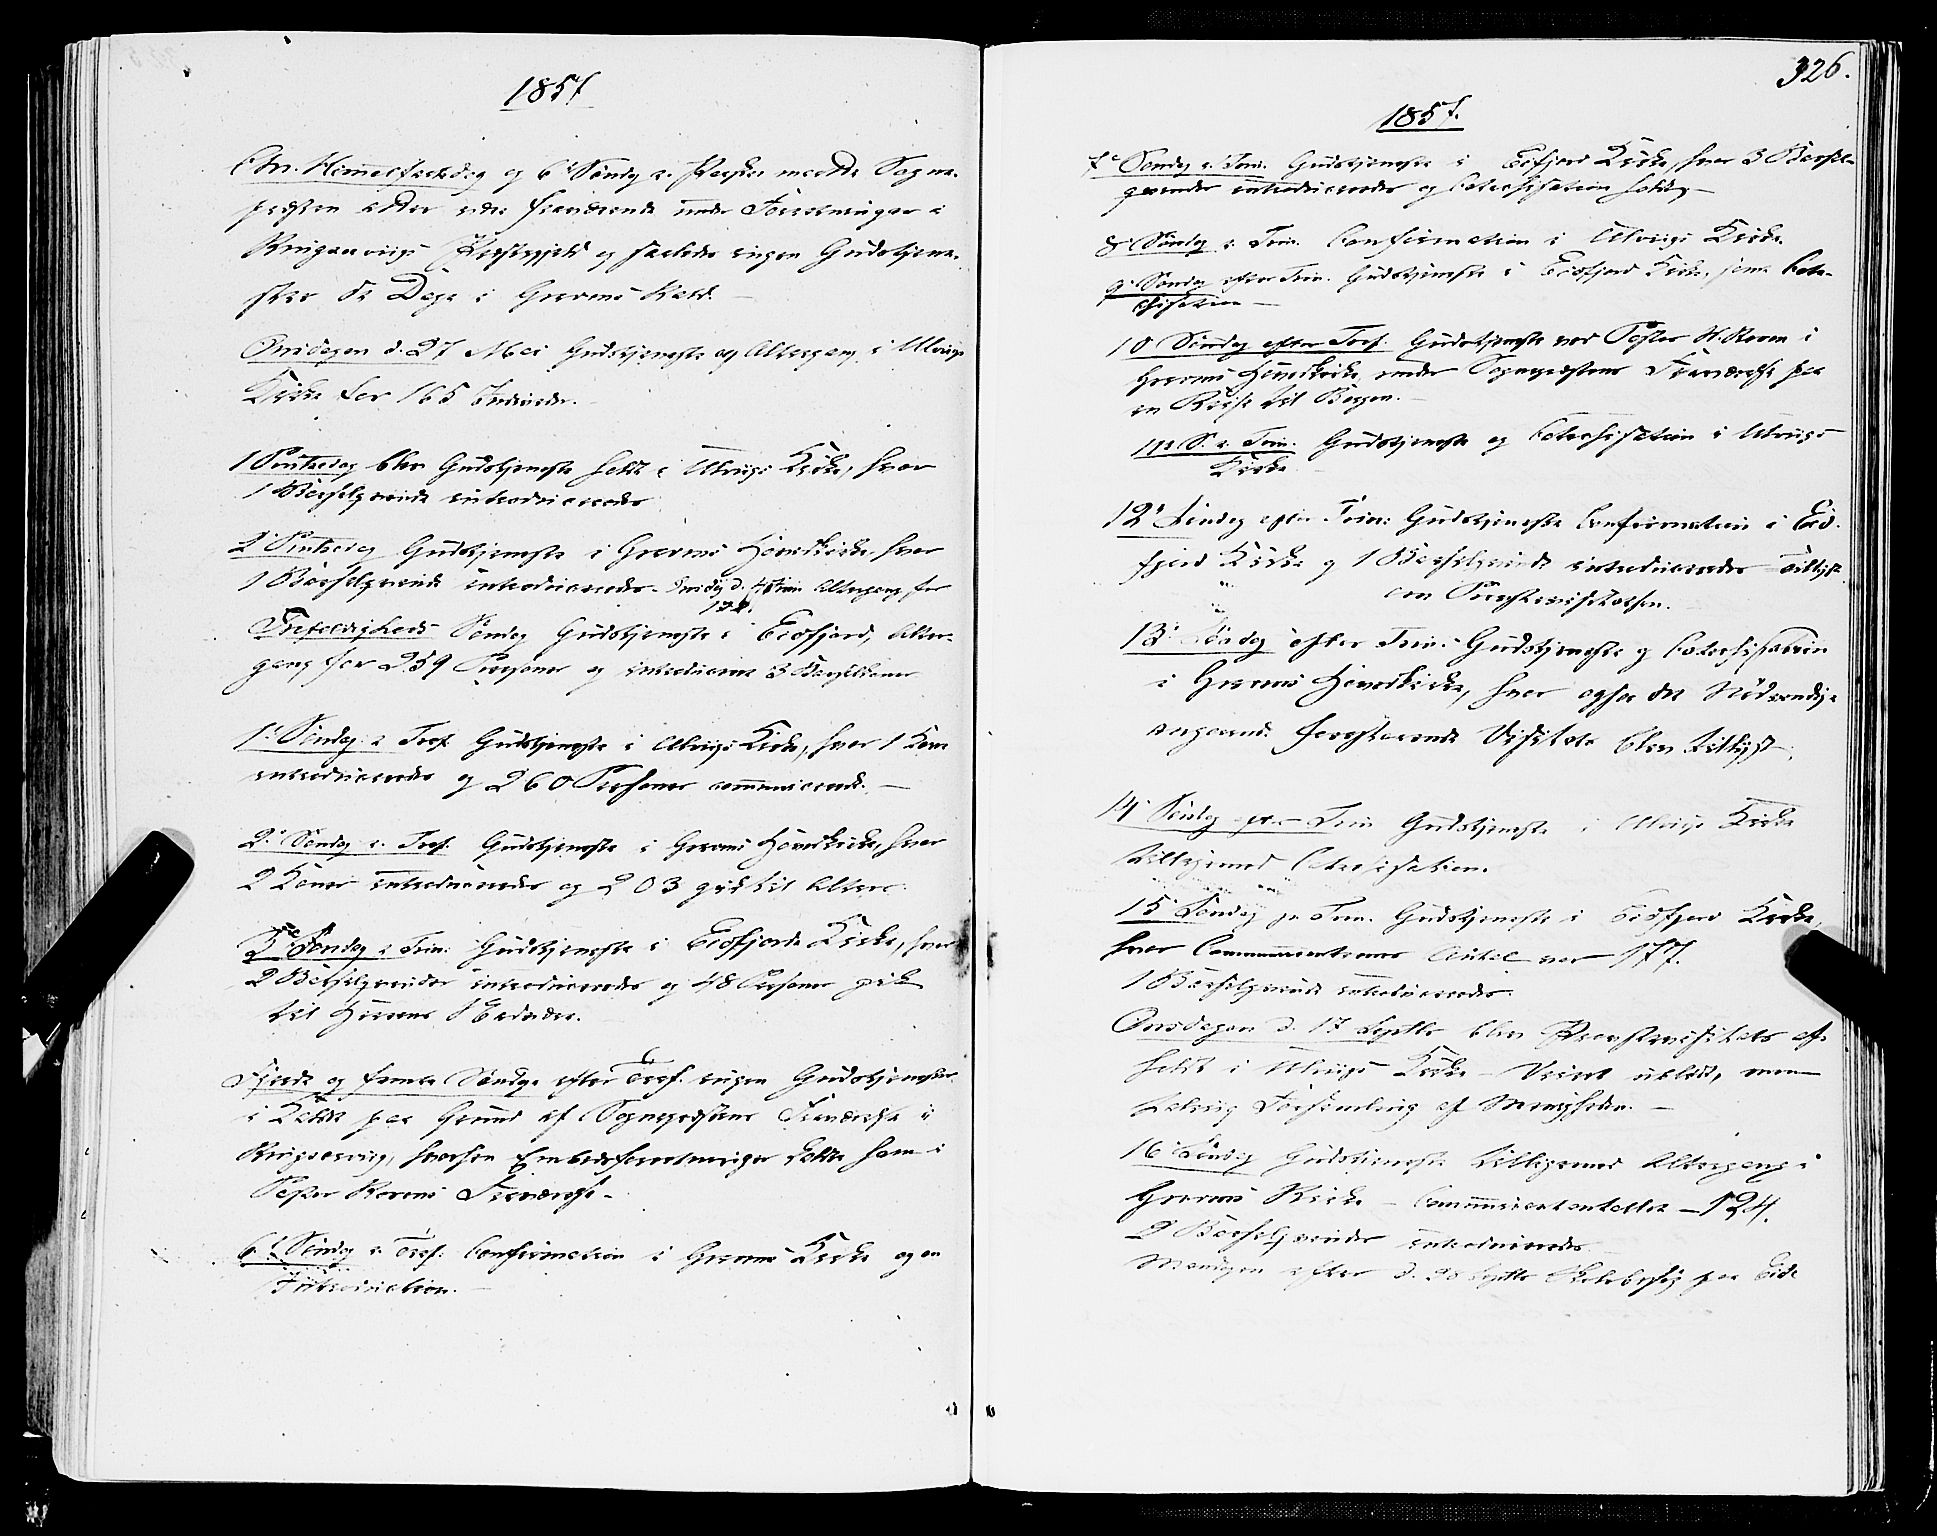 1857
Chr. Himmelfartsdag og 6te Søndag e. Paaske maatte Sogne-
præsten atter være fraværende under Forretninger i
Præstegjeld og saaledes ingen Gudstjene-
ster de Dage i Gravens Kald. —
Onsdagen d. 27 Mai Gudstjeneste og Altergang i Ulviigs
Kirke for 165 Individer. —
1 Pintsedag blev Gudstjeneste holdt i Ulviigs Kirke, hvor
1 Barselqvinde introduceredes
2 Pintsedag Gudstjeneste i Gravens Hovedkirke hvor
1 Barselqvinde introduceredes. Altergang for
Trefoldigheds Søndag Gudstjeneste i Eidfjord, Alter-
gang for 259 Personer og 3 Barselkoner
1te Søndag e Tref. Gudstjeneste i Ulviigs Kirke, hvor 1 Kone
introduceredes og 260 Personer communicerede. —
2. Søndag e. Tref. Gudstjeneste i Gravens Hovedkirke, hvor
2 Koner introduceredes og 203 gik til Alters.
3de Søndag e Trin: Gudstjeneste i Eidfjords Kirke, hvor
2 Barselqvinder introduceredes og 48 Personer gik
til Herrens Nadver. —
Fjerde og femte Søndag efter Tref. ingen Gudstjenester
i Kaldet paa Grund af Sognepræstens Fraværelse i
hvorhen Embedsforretninger kaldte ham i
Pastor Fraværelse. —
6te Søndag e. Tref. Confirmation i Gravens Kirke og en
Introduction. —
326.
1857.
7de Søndag e. Trin. Gudstjeneste i Eidfjord Kirke, hvor 3 Barsel-
qvinder introduceredes og Catechisation holdtes —
8 Søndag e. Trin. Confirmation i Ulviigs Kirke.
9 Søndag efter Trin. Gudstjeneste i Eidfjord Kirke, samt Cate-
chisation —
10 Søndag efter Tref. Gudstjeneste ved Pastor i
Gravens Hovedkirke, under Sognepræstens Fraværelse paa
en Reise til Bergen. —
11te S. e. Trin. Gudstjeneste og Catechisation i Ulviigs
Kirke. —
12te Søndag efter Trin: Gudstjeneste Confirmation i Eid-
fjord Kirke og 1 Barselqvinde introduceredes
om Provstevisitatsen.
13. Søndag efter Trin: Gudstjeneste og Catechisation
i Gravens Hovedkirke, hvor ogsaa det Nødvendige
angaaende forestaaende Visitats blev tillyst.
14 Søndag efter Trin Gudstjeneste i Ulviigs Kirke
tilligemed Catechisation.
15 Søndag Trin. Gudstjeneste i Eidfjord Kirke,
hvor Communicanternes Antal var 177.
1 Barselqvinde introduceredes.
Onsdagen d. 17 Septbr blev Provstevisitats af-
holdt i Ulviigs Kirke — men
talrig Forsamling af Menigheden. —
16 Søndag Gudstjeneste tilligemed Altergang i
Gravens Kirke — Communicantantallet — 124.
2 Barselqvinder introduceredes
Mandagen efter d. Septbr Skolebesøg paa Eide